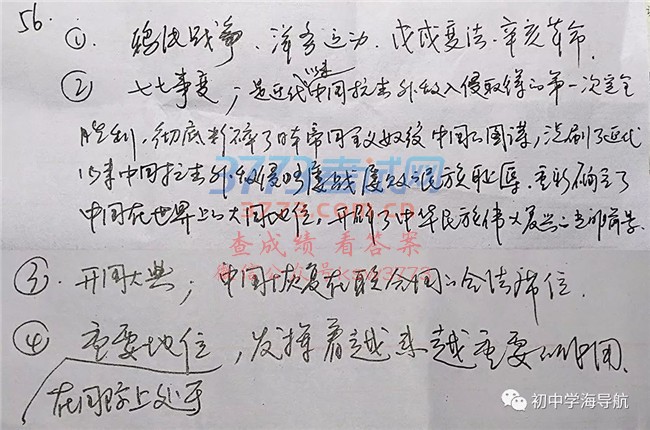 56.
① 鸦片战争、洋务运动、戊戌变法、辛亥革命.
② 七七事变;是近代以来中国抗击外敌入侵取得的第一次完全
胜利,彻底粉碎了日本帝国主义奴役中国的图谋,洗刷了近代
以来中国抗击外敌侵略屡战屡败的民族耻辱.重新确立了
中国在世界上的大国地位,开辟了中华民族伟大复兴的光明前景.
③. 开国大典; 中国恢复在联合国的合法席位.
④ 重要地位,发挥着越来越重要的作用.
在国际上处于
3773考试网
3773.com.cn
查成绩 看答案
初中学海导航